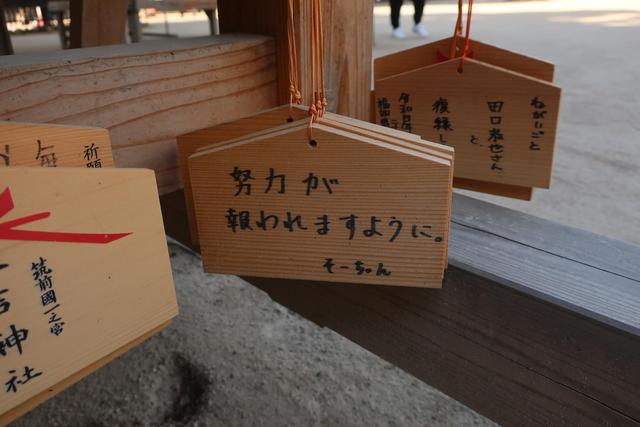 努力が
報われますように。
そーちゃん
ねがいごと
田口
さん
と
復縁し
令和
祈願
筑前國一之宮
吉神社